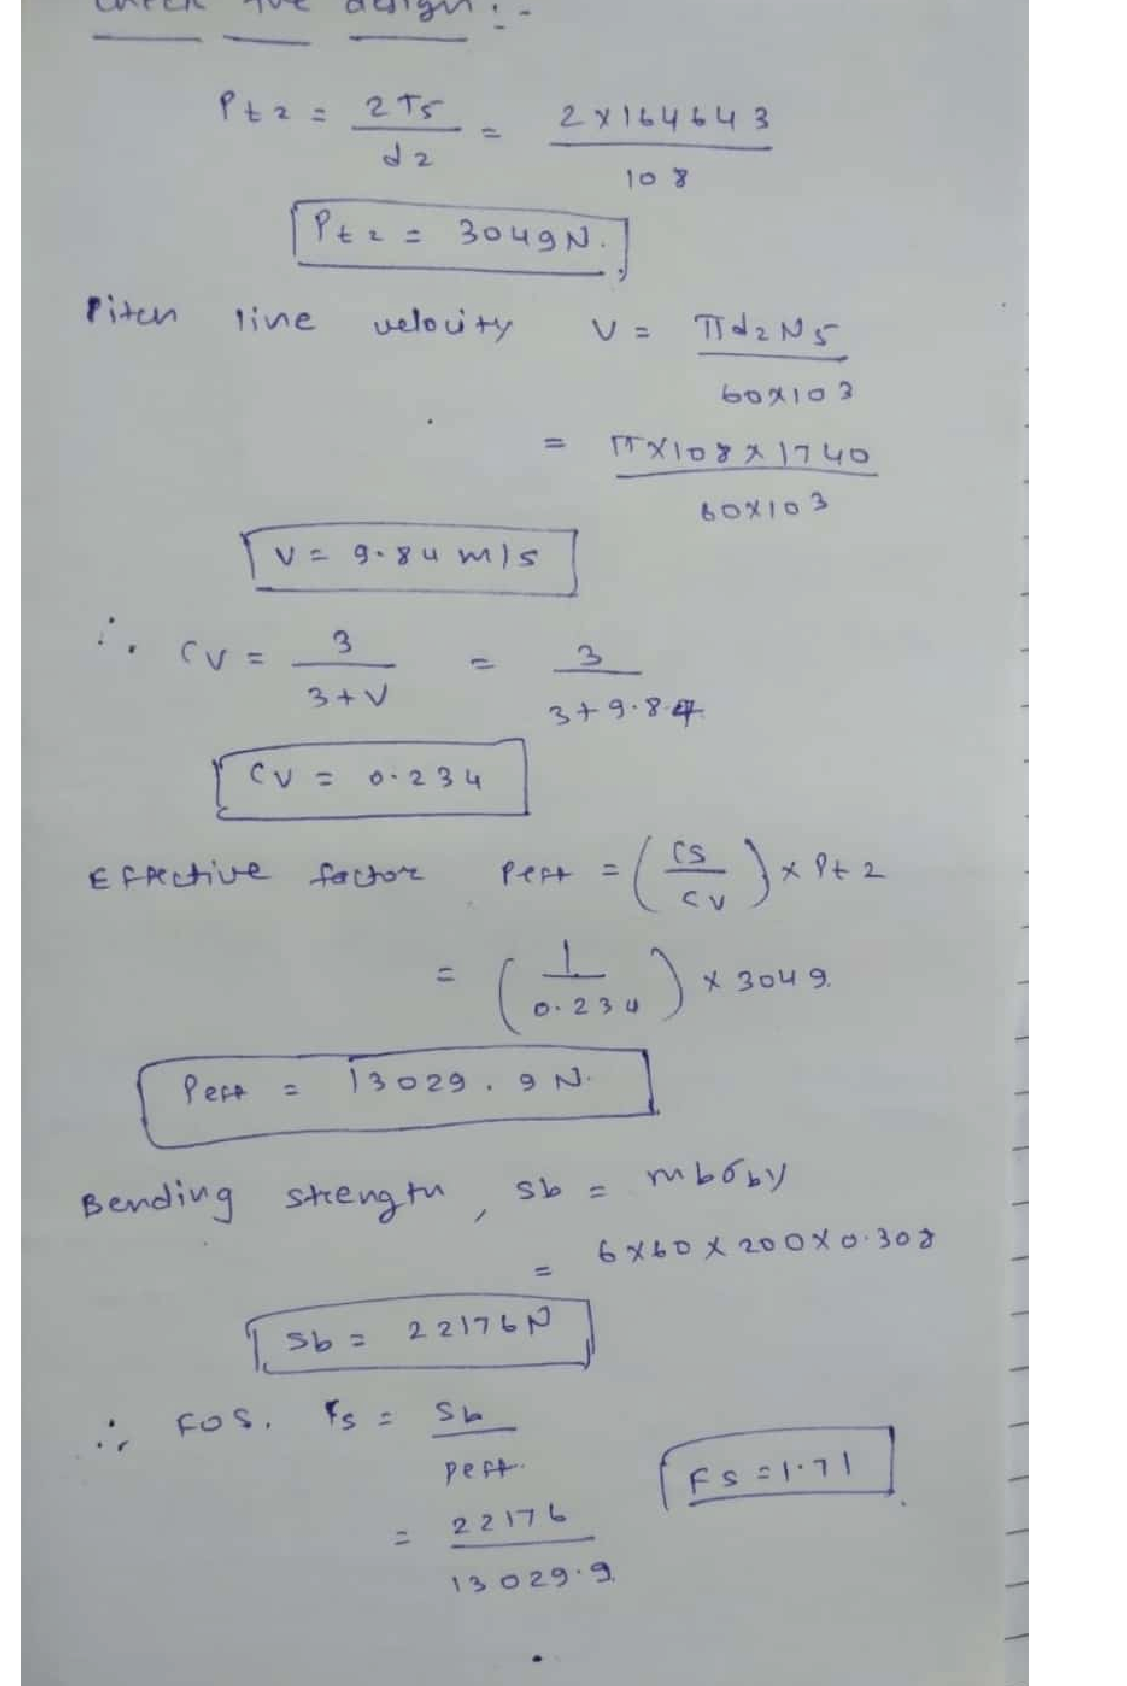 Check the design :-
Pt2 = 2T5 / d2 = 2 × 164643 / 108
Pt2 = 3049N.
Pitch line velocity V = πd2N5 / 60×10³
= π×108×1740 / 60×10³
V = 9.84 m/s
∴ CV = 3 / 3+V = 3 / 3+9.84
CV = 0.234
Effective factor Peff = (CS / CV) × Pt2
= (1 / 0.234) × 3049.
Peff = 13029.9 N.
Bending strength, Sb = mbσby
= 6×60×200×0.308
Sb = 22176N
∴ FOS. Fs = Sb / Peff.
= 22176 / 13029.9
FS = 1.71